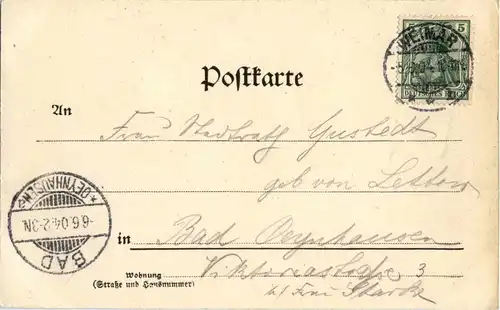 5 5
WEIMAR
DEUTSCHES REICH
Postkarte
An
Frau Stadtrath Gustedt
geb von Lettow
BAD
* OEYNHAUSEN *
-6.6.04.2-3N.
in Bad Oeynhausen
Wohnung
(Straße und Hausnummer)
Viktoriastraße 3
b/ Frau Starck